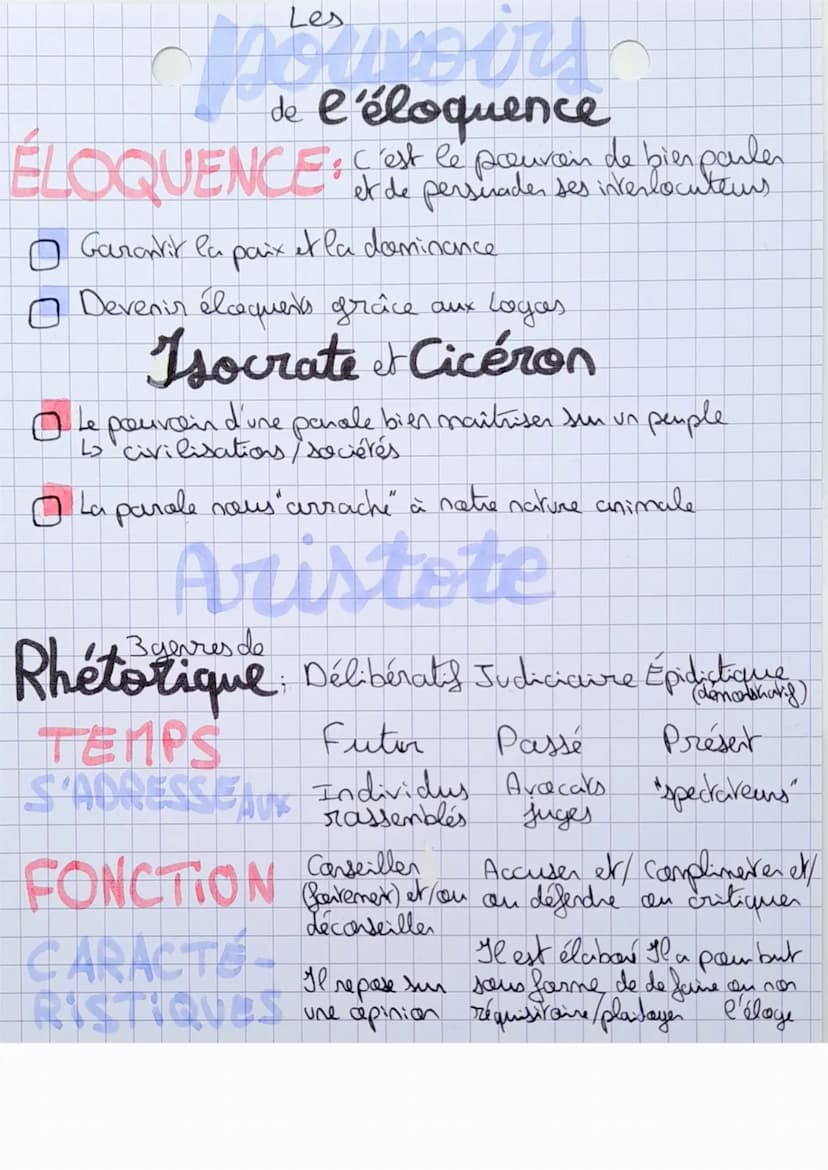 Les
pouvoirs
de l'éloquence
ÉLOQUENCE: c'est le pouvoir de bien parler
et de persuader ses interlocuteurs
Garantir la paix et la dominance
Devenir éloquents grâce aux logos
Isocrate et Cicéron
Le pouvoir d'une parole bien maîtriser sur un peuple
↳ civilisations/sociétés
La parole nous "arrache" à notre nature animale
Aristote
3 genres de
Rhétorique: Délibératif Judiciaire Épidictique
(démonstratif)
TEMPS Futur Passé Présent
S'ADRESSE AUX Individus Avocats "spectateurs"
rassemblés juges
FONCTION Conseiller Accuser et/ Complimenter et/
(fortement) et/ou ou défendre ou critiquer
déconseiller
CARACTÉ- Il est élaboré Il a pour but
Il repose sur sous forme de de faire ou non
RISTIQUES une opinion réquisitoire/plaidoyer l'éloge